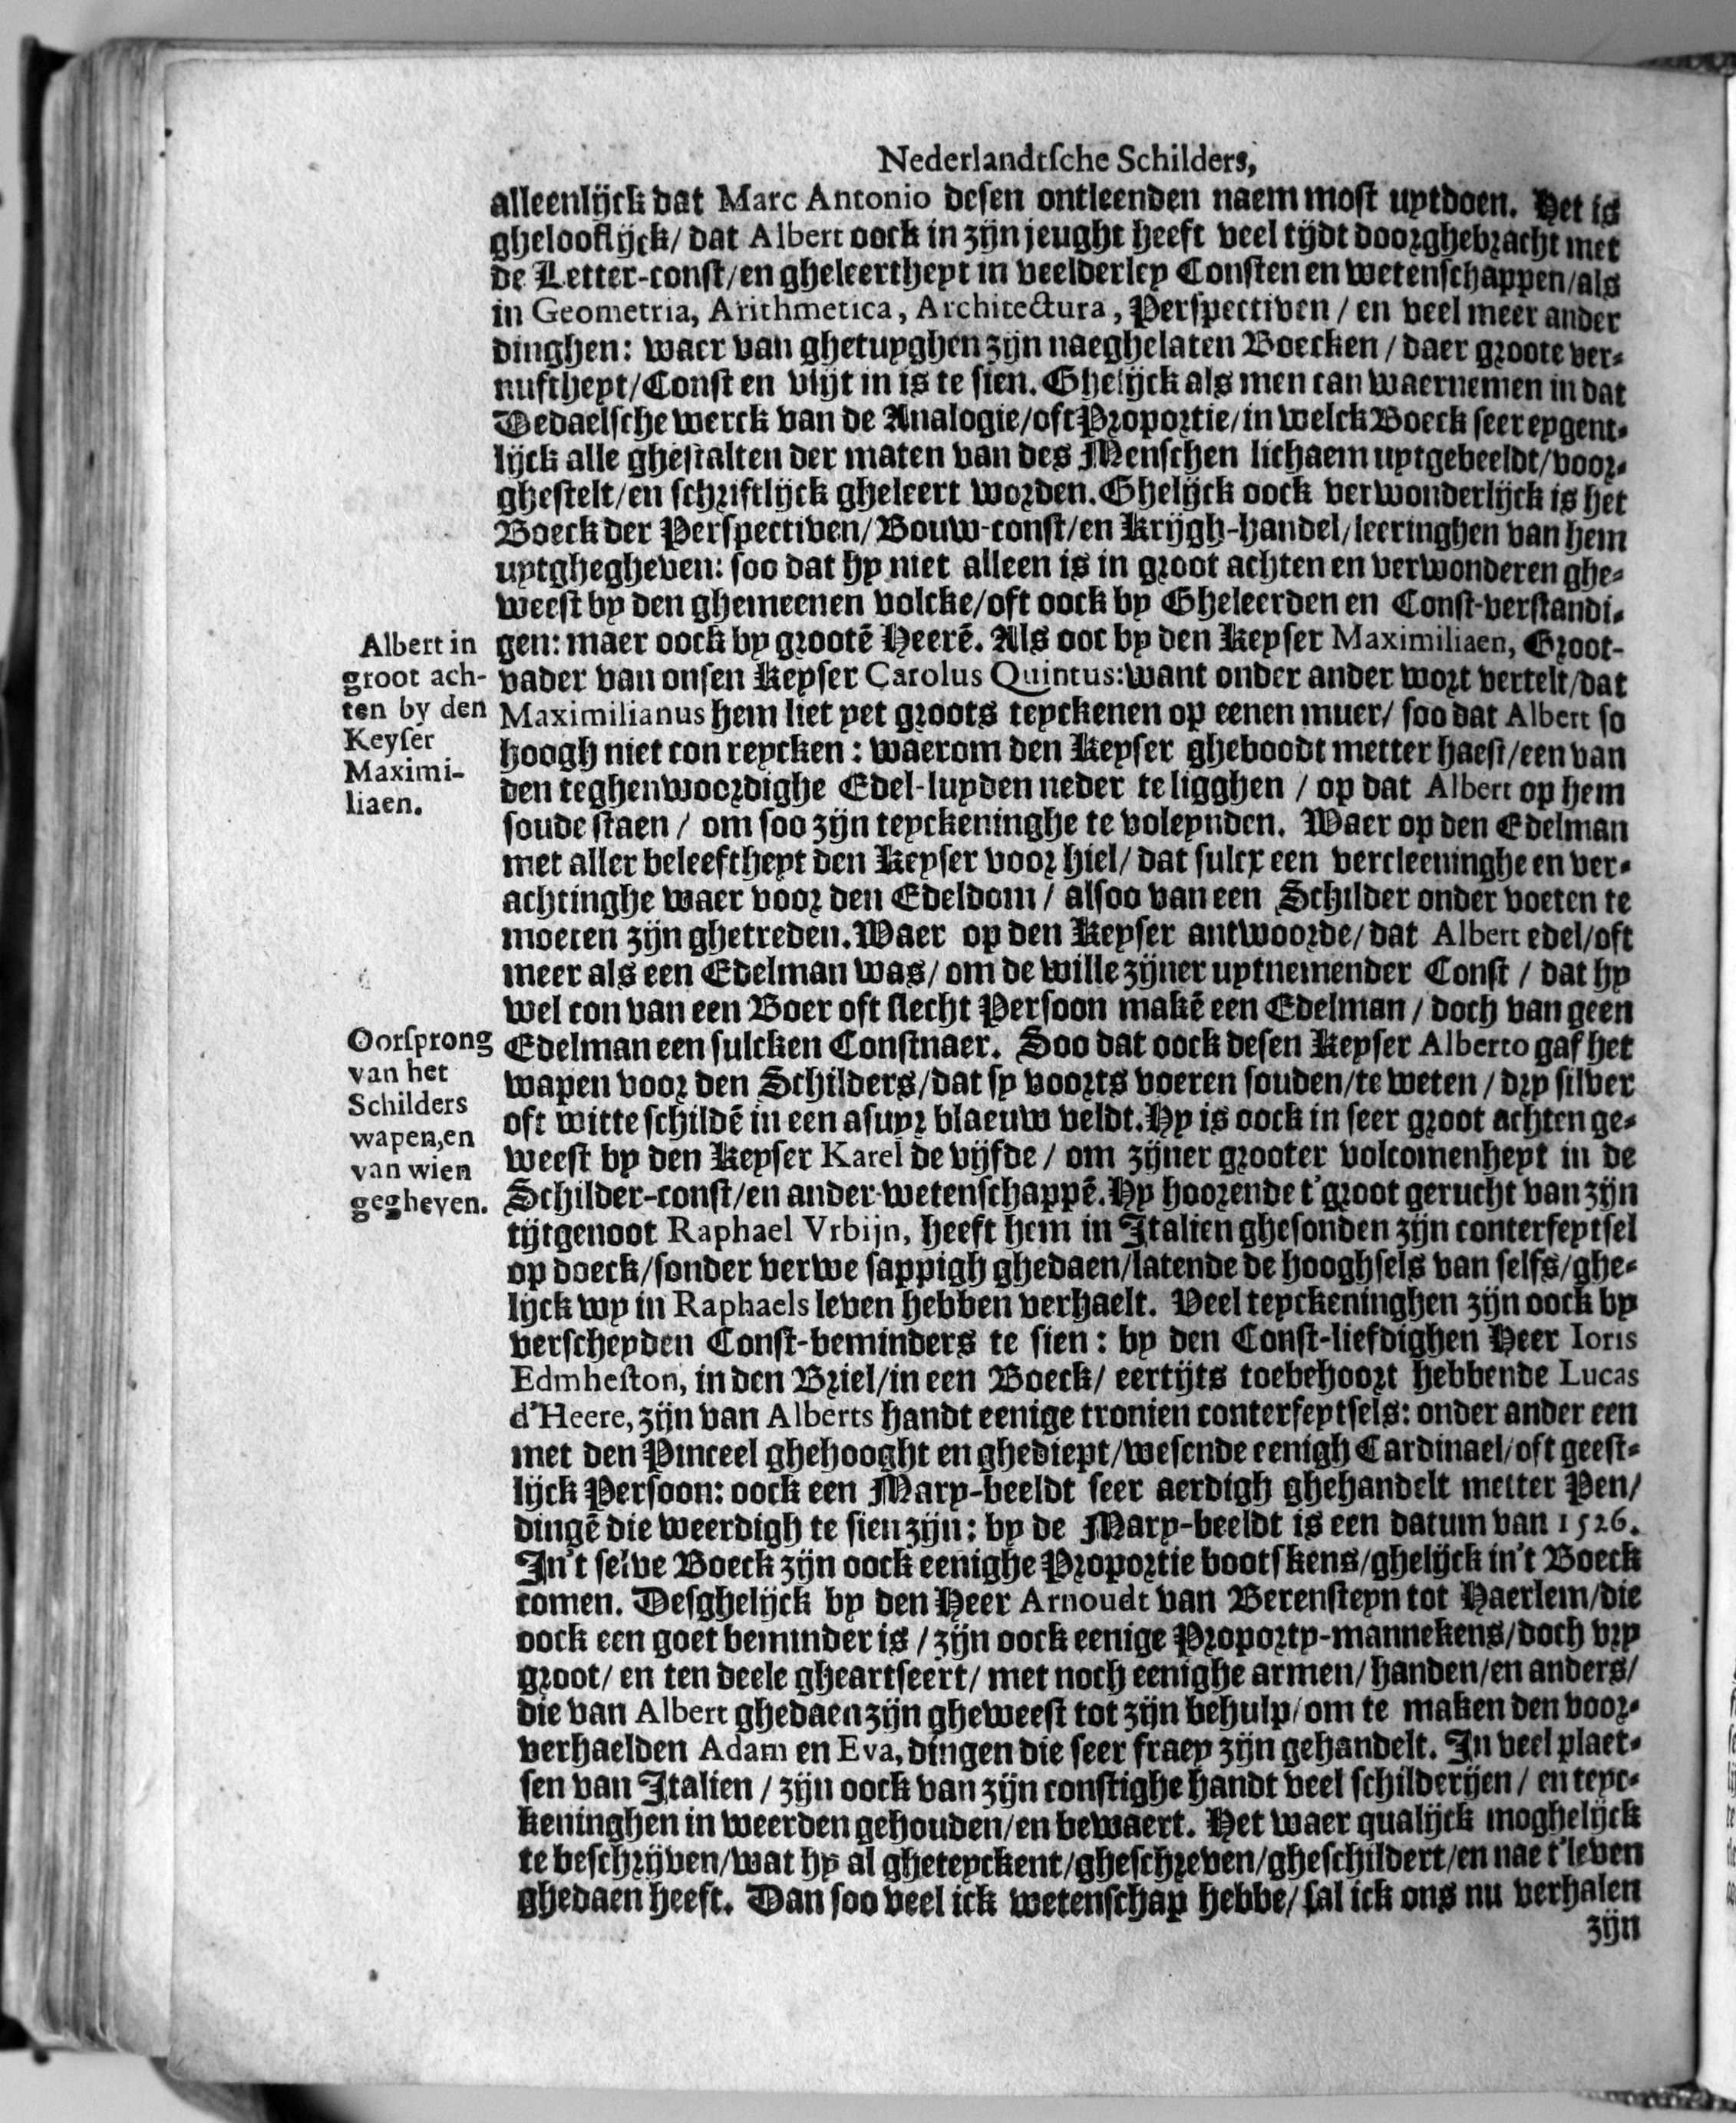 Nederlandtſche Schilders,
alleenlijck dat Marc Antonio desen ontleenden naem most uytdoen. Het is
gheloofflijck/ dat Albert oock in zijn jeught heeft veel tijdt doorghebracht met
de Letter-const/en gheleertheyt in veelderley Consten en wetenschappen/als
in Geometria, Arithmetica, Architectura, Perspectiven / en veel meer ander
dinghen: waer van ghetuyghen zijn naeghelaten Boecken / daer groote ver-
nuftheyt/Const en vlijt in is te sien. Ghelijck als men can waernemen in dat
Dedaelsche werck van de Analogie/oft Proportie/in welck Boeck seer eygent-
lijck alle ghestalten der maten van des Menschen lichaem uytgebeeldt/voor-
ghestelt/en schriftlijck gheleert worden. Ghelijck oock verwonderlijck is het
Boeck der Perspectiven/Bouw-const/en Krijgh-handel/leeringhen van hem
uytghegheven: soo dat hy niet alleen is in groot achten en verwonderen ghe-
weest by den ghemeenen volcke/oft oock by Gheleerden en Const-verstandi-
gen: maer oock by grootē Heerē. Als ooc by den Keyser Maximiliaen, Groot-
vader van onsen Keyser Carolus Quintus: want onder ander wort vertelt/dat
Maximilianus hem liet yet groots teyckenen op eenen muer/ soo dat Albert so
hoogh niet con reycken: waerom den Keyser gheboodt metter haest/een van
den teghenwoordighe Edel-luyden neder te ligghen / op dat Albert op hem
soude staen / om soo zijn teyckeninghe te voleynden. Waer op den Edelman
met aller beleeftheyt den Keyser voor hiel/ dat sulcx een vercleeninghe en ver-
achtinghe waer voor den Edeldom / alsoo van een Schilder onder voeten te
moeten zijn ghetreden. Waer op den Keyser antwoorde/ dat Albert edel/oft
meer als een Edelman was/ om de wille zijner uytnemender Const / dat hy
wel con van een Boer oft slecht Persoon makē een Edelman / doch van geen
Edelman een sulcken Constnaer. Soo dat oock desen Keyser Alberto gaf het
wapen voor den Schilders/dat sy voorts voeren souden/te weten / dry silver
oft witte schildē in een asuyr blaeuw veldt. Hy is oock in seer groot achten ge-
weest by den Keyser Karel de vijfde / om zijner grooter volcomenheyt in de
Schilder-const/en ander wetenschappē. Hy hoorende t'groot gerucht van zijn
tijtgenoot Raphael Vrbijn, heeft hem in Italien ghesonden zijn conterfeytsel
op doeck/sonder verwe sappigh ghedaen/latende de hooghsels van selfs/ghe-
lijck wy in Raphaels leven hebben verhaelt. Veel teyckeninghen zijn oock by
verscheyden Const-beminders te sien: by den Const-liefdighen Heer Ioris
Edmheſton, in den Briel/in een Boeck/ eertijts toebehoort hebbende Lucas
d'Heere, zijn van Alberts handt eenige tronien conterfeytsels: onder ander een
met den Pinceel ghehooght en ghediept/wesende eenigh Cardinael/oft geest-
lijck Persoon: oock een Mary-beeldt seer aerdigh ghehandelt metter Pen/
dingē die weerdigh te sien zijn: by de Mary-beeldt is een datum van 1526.
In't selve Boeck zijn oock eenighe Proportie bootskens/ghelijck in't Boeck
comen. Desghelijck by den Heer Arnoudt van Berensteyn tot Haerlem/die
oock een goet beminder is / zijn oock eenige Proporty-mannekens/doch vry
groot/ en ten deele gheartseert/ met noch eenighe armen/ handen/en anders/
die van Albert ghedaen zijn gheweest tot zijn behulp/om te maken den voor-
verhaelden Adam en Eva, dingen die seer fraey zijn gehandelt. In veel plaet-
sen van Italien / zijn oock van zijn constighe handt veel schilderijen / en teyc-
keninghen in weerden gehouden/en bewaert. Het waer qualijck moghelijck
te beschrijven/wat hy al gheteyckent/gheschreven/gheschildert/en nae t'leven
ghedaen heeft. Dan soo veel ick wetenschap hebbe/ sal ick ons nu verhalen
zijn
Albert in
groot ach-
ten by den
Keyſer
Maximi-
liaen.
Oorſprong
van het
Schilders
wapen, en
van wien
gegheven.